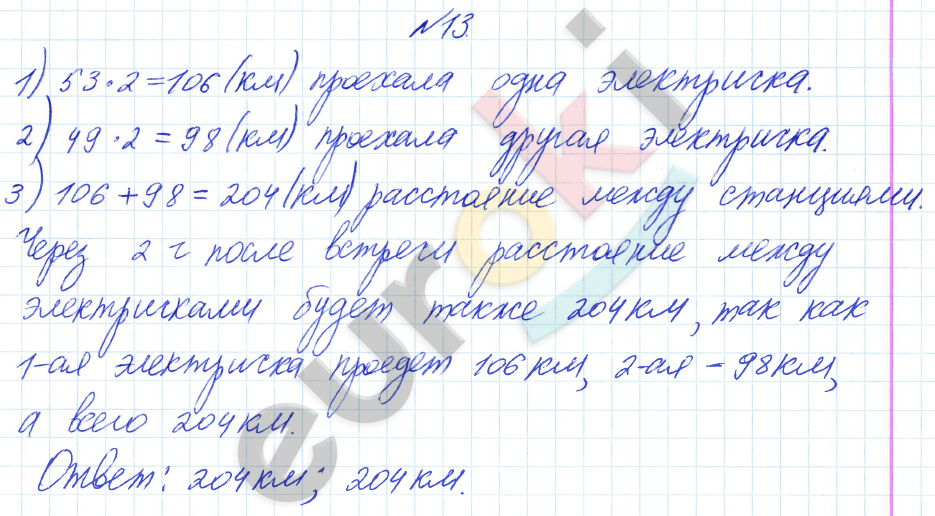 №13.
1) 53·2=106 (км) проехала одна электричка.
2) 49·2=98 (км) проехала другая электричка.
3) 106+98=204 (км) расстояние между станциями.
Через 2 ч после встречи расстояние между
электричками будет также 204 км, так как
1-ая электричка проедет 106 км, 2-ая – 98 км,
а всего 204 км.
Ответ: 204 км; 204 км.
euroki